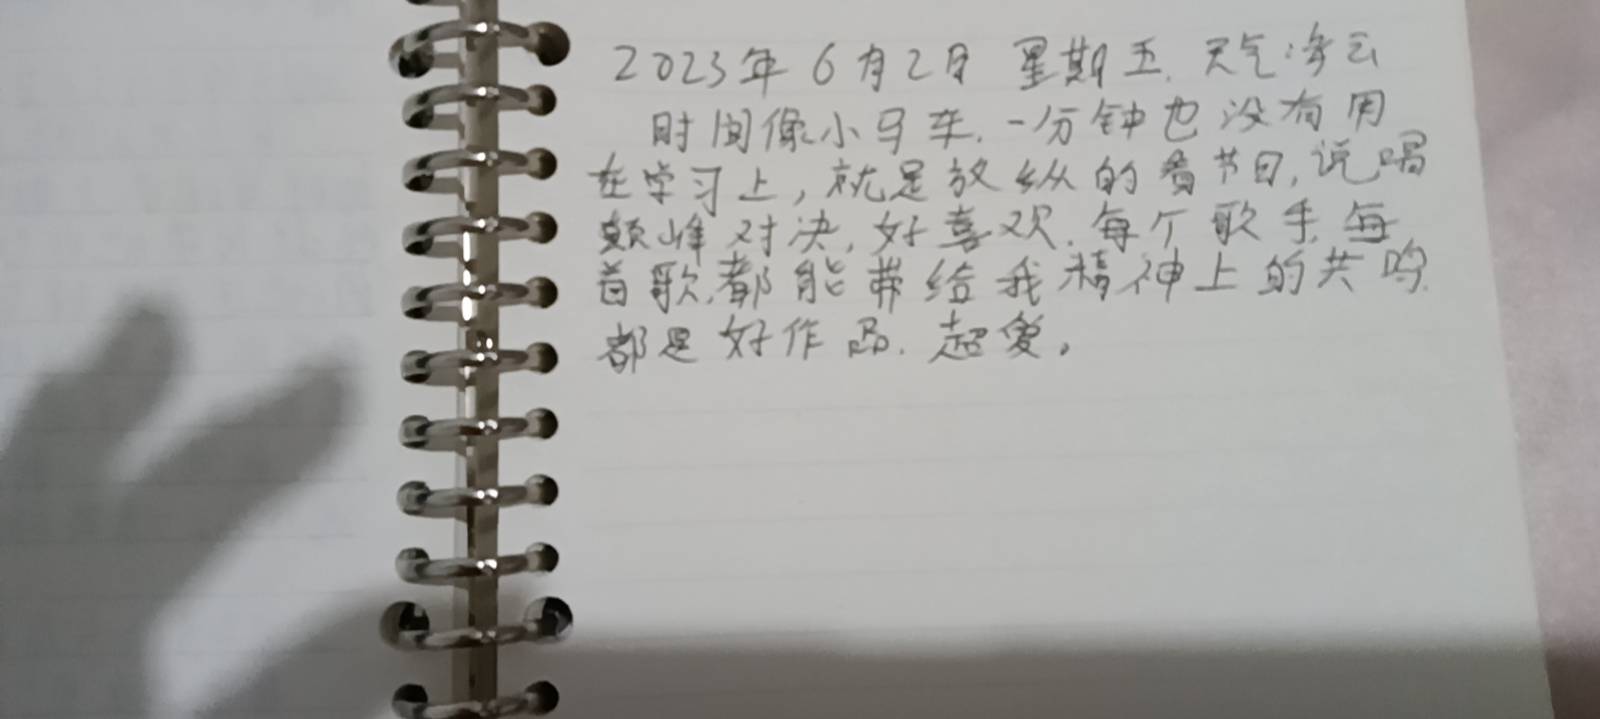 2023年6月2日 星期五. 天气:多云
时间像小马车.一分钟也没有用
在学习上,就是放纵的看节目,说唱
颠峰对决,好喜欢.每个歌手,每
首歌,都能带给我精神上的共鸣.
都是好作品.超爱。